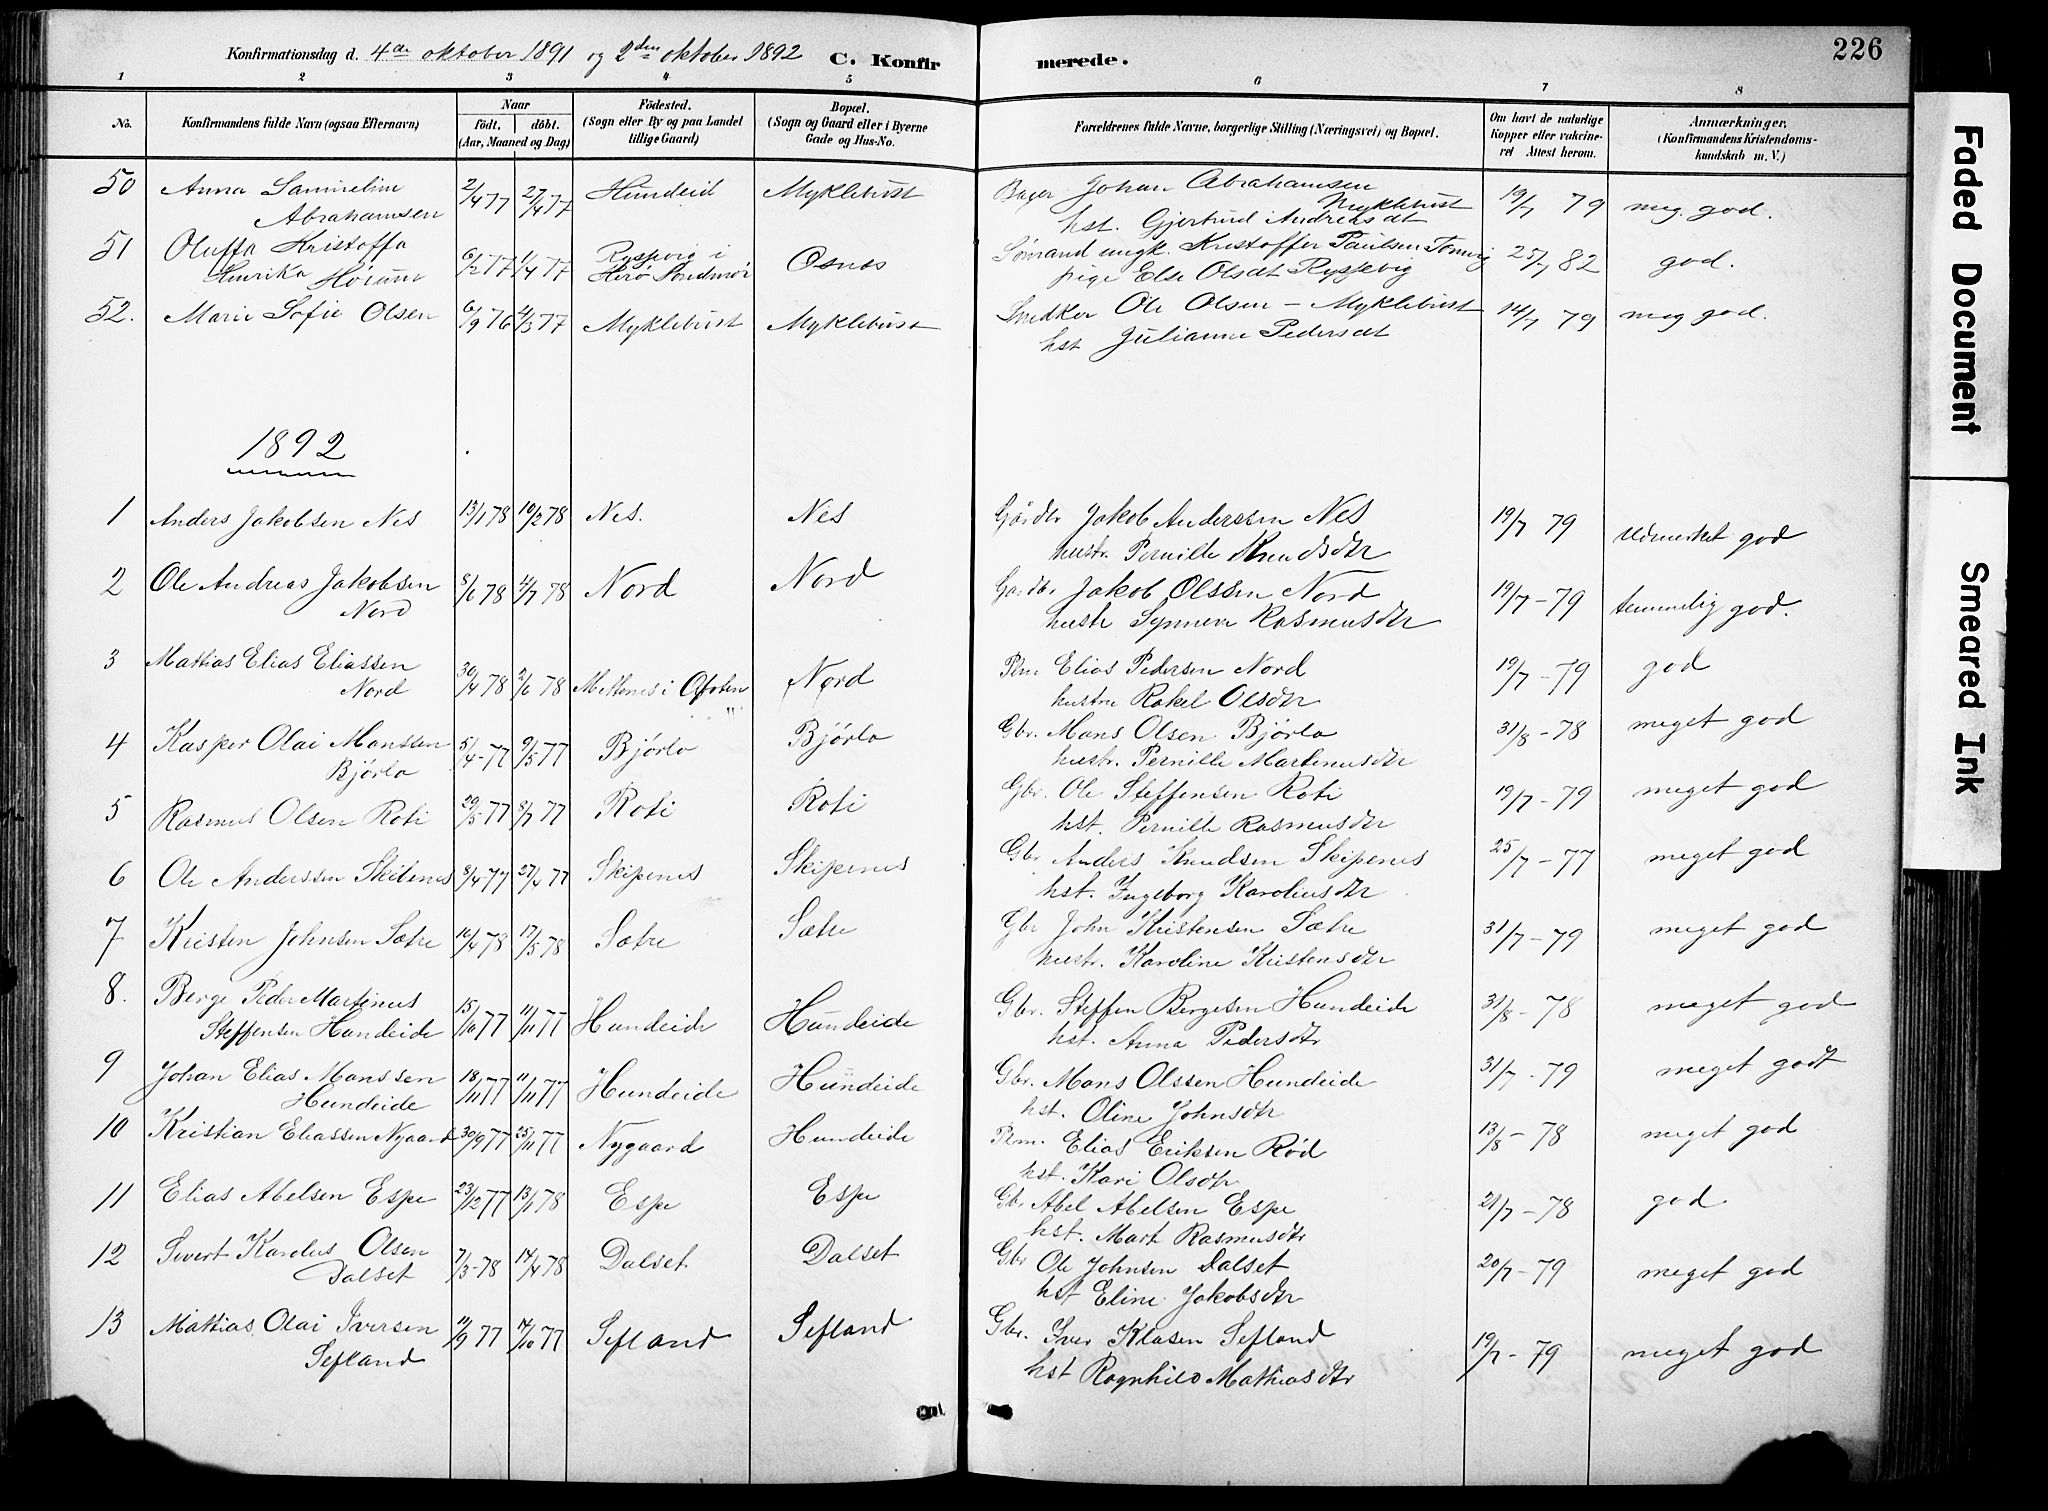 226
Konfirmationsdag d. 4de oktober 1891 og 2den oktober 1892 C. Konfirmerede.
1 2 3 4 5 6 7 8
No. Konfirmandens fulde Navn (ogsaa Efternavn) Naar födt. döbt. (Aar, Maaned og Dag)
Födested. (Sogn eller By og paa Landet tillige Gaard)
Bopæl. (Sogn og Gaard eller i Byerne Gade og Hus-No.
Forældrenes fulde Navne, borgerlige Stilling (Næringsvei) og Bopæl.
Om havt de naturlige Kopper eller vakcineret Attest herom.
Anmærkninger. (Konfirmandens Kristendomskundskab m. V.)
50 Anna Samueline 2/4 77 27/4 77 Hundeid Myklebust Bager Johan Abrahamsen 19/7 79 meg. god.
Abrahamsen Myklebust
hst. Gjertrud Andreasdt
51 Oluffa Kristoffa 6/2 77 1/4 77 Rysjevig i Osnes Sömand ungk. Kristoffer Paulsen 25/7 82 god.
Henrika Hörum Herö Söndmör pige Else Olsdt Rysjevig
52. Marie Sofie Olsen 6/9 76 4/3 77 Myklebust Myklebust Snedker Ole Olsen – Myklebust 14/7 79 meg god.
hst Julianne Pedersdt
1892
1 Anders Jakobsen Nes 13/1 78 10/2 78 Nes. Nes Gårdbr Jakob Anderssen Nes 19/7 79 udmerket god
hustr. Pernille Knudsdtr
2 Ole Andreas Jakobsen 8/6 78 4/7 78 Nord Nord Gardbr Jakob Olssen Nord 19/7 – 79 temmelig god.
Nord hustr Synneve Rasmusdtr
3 Mathias Elias Eliassen 30/4 78 2/6 78 i Ofoten Nord Elias Pedersen Nord 19/7 – 79 god
Nord " hustru Rakel Olsdtr
4 Kasper Olai Monssen 5/4 – 77 9/5 77 Bjørlo Bjørlo Gbr. Mons Olsen Bjørlo 31/8 – 78 meget god
Bjørlo hustr. Pernille Martinusdtr
5 Rasmus Olsen Roti 29/5 77 8/7 77 Roti Roti Gbr. Ole Steffensen Roti 19/7 – 79 meget god
hst. Pernille Rasmusdtr
6 Ole Anderssen Skibenes 8/4 77 27/4 77 Skipenes Skipenes Gbr Anders Knudsen Skipenes 25/7 – 77 meget god
hst. Ingeborg Karoliusdtr
7 Kristen Johnsen Sætre 16/4 78 17/5 78 Sætre Sætre Gbr John Kristensen Sætre 31/7 – 79 meget god
hustr. Karoline Kristensdtr
8. Berge Peder Martinus 15/10 77 11/11 77 Hundeide Hundeide Gbr. Steffen Bergesen Hundeide 31/8 – 78 meget god
Steffensen Hundeide hst. Anna Pedersdtr
9 Johan Elias Monssen 18/11 77 11/11 77 Hundeide Hundeide Gbr. Mons Olssen Hundeide 31/7 – 79 meget godt
Hundeide hst. Oline Johnsdtr
10 Kristian Eliassen Nygaard 30/9 77 25/11 77 Nygaard Hundeide Elias Eriksen Rød 13/8 – 78 meget god
hst. Kari Olsdtr
11 Elias Abelsen Espe 23/12 77 13/1 78 Espe Espe Gbr Abel Abelsen Espe 21/7 – 78 god
hst. Mart Rasmusdtr
12 Sivert Karolus Olsen 7/3 – 78 14/4 78 Dalset Dalset Gbr Ole Johnsen Dalset 20/7 – 79 meget god
Dalset hst Eline Jakobsdtr
13 Mathias Olai Iversen 11/9 77 14/10 77 Sefland Sefland Gbr. Iver Klasen Sefland 19/7 – 79 meget god
Sefland hst Ragnhild Mathiasdtr
Faded Document
Smeared Ink